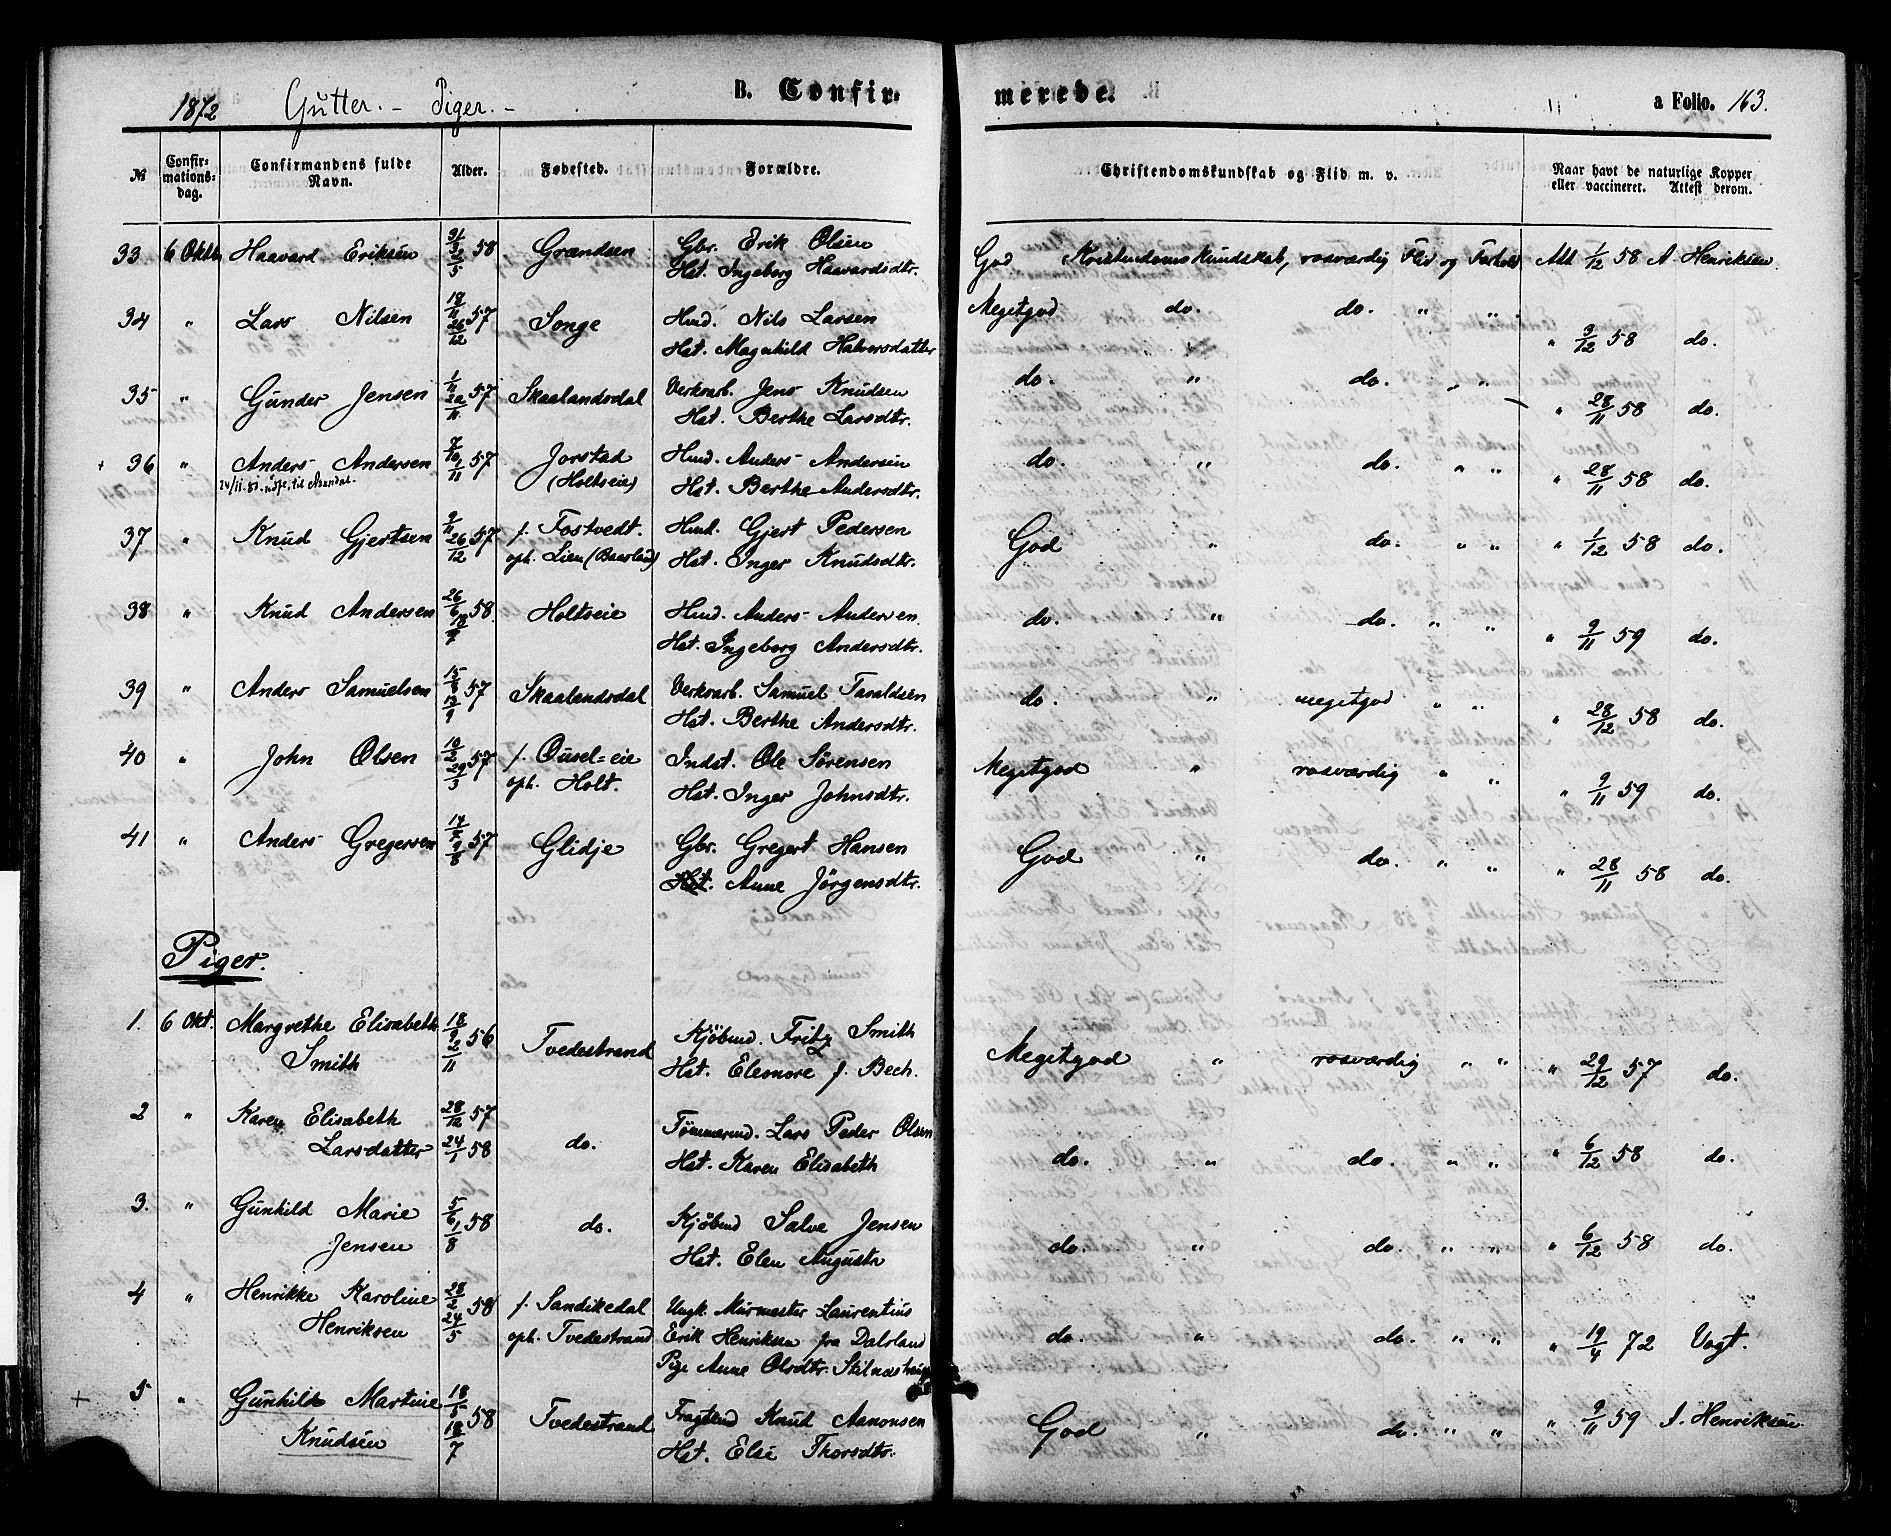 1872 Gutter. - Piger. - B. Confirmerede. a Folio. 163.
№ Confirmationsdag. Confirmandens fulde Navn. Alder. Fødested. Forældre. Christendomskundskab og Flid m. v. Naar havt de naturlige Kopper eller vaccineret. Attest derom.
33 6 Oktb. Haavard Eriksen 31/3 2/5 58 Grændsen Gbr. Erik Olsen God Kristendomskundskab, rosværdig Flid og Forhold Att 1/12 58 A. Henriksen
Hst. Ingeborg Haavardsdtr.
34 " Lars Nilsen 18/11 26/12 57 Songe Hmd. Nils Larsen Megetgod do. do. " " " 3/12 58 do.
Hst. Magnhild Halvorsdatter
35 " Gunder Jensen 1/11 22/11 57 Skaalandsdal Verksarb. Jens Knudsen do. " do. " " " 28/11 58 do.
Hst. Berthe Larsdtr.
+ 36 " Anders Andersen 7/10 1/11 57 Jorstad Hmd. Anders Andersen do. " do. " " " 28/11 58 do.
24/11-81. udfl. til Arendal. (Holtseie) Hst. Berthe Andersdtr.
37 " Knud Gjertsen 9/11 26/12 57 f. Fostvedt. Hmd. Gjert Pedersen God " do. " " " 1/12 58 do.
oph. Lien (Baarlid) Hst. Inger Knudsdtr.
38 " Knud Andersen 26/6 18/7 58. Holtseie Hmd. Anders Andersen. do. " do. " " " 9/11 59 do.
Hst. Ingeborg Andersdtr.
39 " Anders Samuelsen 15/8 13/9 57 Skaalandsdal Verksarb. Samuel Taraldsen do. " megetgod " " " 28/12 58 do.
Hst. Berthe Andersdtr.
40 " John Olsen 10/2 29/3 57 f. Ousel=eie Indst. Ole Sørensen Megetgod " rosværdig " " " 9/11 59 do.
oph. Holt. Hst. Inger Johnsdtr.
41 " Anders Gregersen 14/7 9/8 57 Glidje Gbr. Gregert Hansen God " do. " " " 28/11 58 do.
Hst. Anne Jörgensdtr.
Piger.
1. 6 Okt. Margrethe Elisabeth 18/9 2/11 56 Tvedestrand Kjöbmd. Fritz Smith Megetgod " rosværdig " " " 29/12 57 do.
Smith Hst. Eleonore f. Bech.
2 " Karen Elisabeth 28/12 57 do. Tömmermd. Lars Peder Olsen do. " do. " " " 6/12 58 do.
Larsdatter 24/1 58 Hst. Karen Elisabeth
3. " Gunhild Marie 5/6 1/8 58 do. Kjöbmd Salve Jensen do. " do. " " " 6/12 58 do.
Jensen Hst. Elen Augusta
4 " Henrikke Karoline 28/2 24/5 58 f. Sandikedal Ungk. Murmester Laurentius do. " do. " " " 19/4 72 Vogt.
Henriksen oph. Tvedestrand Erik Henriksen fra Dalsland
Pige Anne Olsdtr.
+ 5 " Gunhild Martine 18/5 18/7 58 Tvedestrand Fragtmd Knud Aanonsen God " do. " " " 9/11 59 J. Henriksen
Knudsen Hst. Else Thorsdtr.